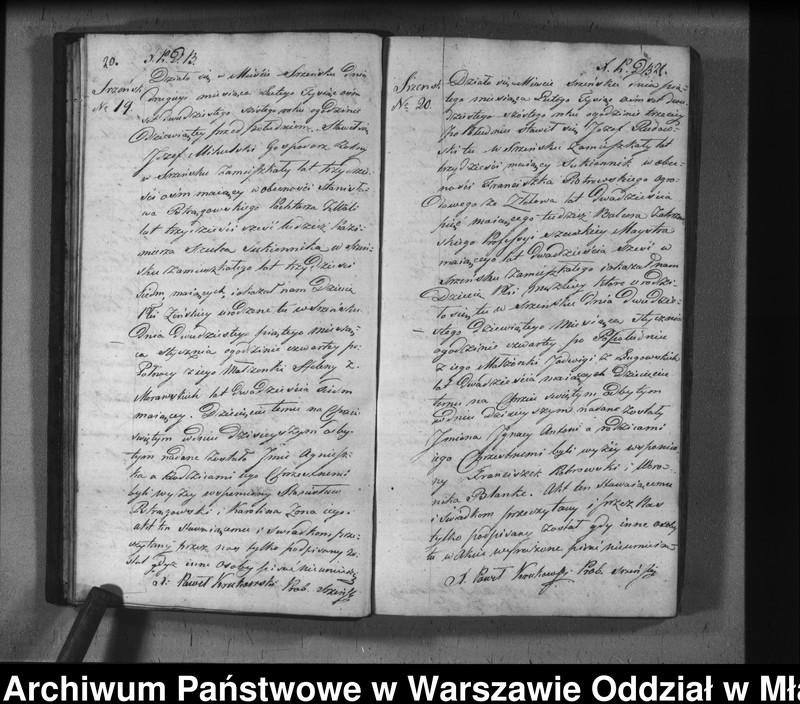 20.
Srzeńsk
№ 19.
Działo się w Mieście Srzeńsku dnia
drugiego miesiąca Lutego Tysiąc ośm
set dwudziestego szóstego roku o godzinie
dziewiątey przed południem. Stawił się
Józef Gospodarz
w Srzeńsku Zamieszkały lat trzydzie
ści ośm maiący w obecności Stanisła
wa Pachtarza
lat trzydzieści sześć tudzież Kazi
mierza Sukiennika w Srzeń
sku Zamieszkałego lat trzydzieści
siedm maiących i okazał nam Dziecie
Płci Żeńskiey urodzone tu w Srzeńsku
Dnia dwudziestego piątego miesią
ca stycznia o godzinie czwartey po
Północy z iego Małżonki Heleny z
Morawskich lat dwadzieścia siedm
maiącey. Dziecięciu temu na Chrzcie
świętym w dniu dzisieyszym odby
tym nadane zostało Imie Agniesz
ka a Rodzicami iego Chrzestnemi
byli wyżey wspomniony Stanisław
i Karolina Żona iego.
akt ten Stawaiącemu i świadkom prze
czytany przez nas tylko podpisany zo
stał gdyż inne osoby pisać nieumieią
X. Paweł Krukowski Prob. Srzeński
Srzeńsk
№ 20.
Działo się w Mieście Srzeńsku dnia pią
tego miesiąca Lutego Tysiąc ośm set dwu
dziestego szóstego roku o godzinie trzeciey
po Południu Stawił się Józef
ski tu w Srzeńsku Zamieszkały lat
trzydzieści maiący Sukiennik w obec
ności Franciszka Piotrowskiego ogro
dowego ze lat dwadzieścia
pięć maiącego tudzież
skiego Professyi szewckiey Maystra
maiącego lat dwadzieścia sześć w
Srzeńsku Zamieszkałego i okazał nam
Dziecie Płci męzkiey które urodzi
ło się tu w Srzeńsku Dnia dwudzie
stego dziewiątego Miesiąca stycznia
o godzinie czwartey po Południu
z iego Małżonki Jadwigi z
lat dwadzieścia maiących Dziecięciu
temu na Chrzcie świętym odbytym
w dniu dzisieyszym nadane zostały
Imiona Ignacy Antoni a rodzicami
iego Chrzestnemi byli wyżey wspomnio
ny Franciszek Piotrowski i
nika Akt ten Stawaiącemu
i świadkom przeczytany i przez Nas
tylko podpisany został gdyż inne osoby
tu w Akcie wyrażone pisać nieumieią
X. Paweł Krukowski Prob. Srzeński
Archiwum Państwowe w Warszawie Oddział w Mła